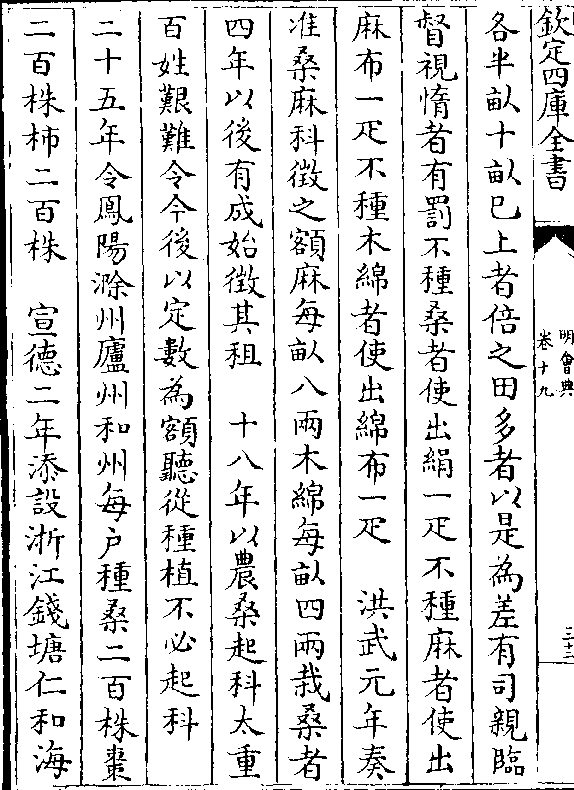 欽定四庫全書
明會典
卷十九
三十二
各半畝十畝已上者倍之田多者以是為差有司親臨
督視惰者有罰不種桑者使出絹一疋不種麻者使出
麻布一疋不種木綿者使出綿布一疋　洪武元年奏
准桑麻科徵之額麻每畝八兩木綿每畝四兩栽桑者
四年以後有成始徵其租　十八年以農桑起科太重
百姓艱難令今後以定數為額聽從種植不必起科
二十五年令鳳陽滁州廬州和州每户種桑二百株棗
二百株柿二百株　宣德二年添設淅江錢塘仁和海